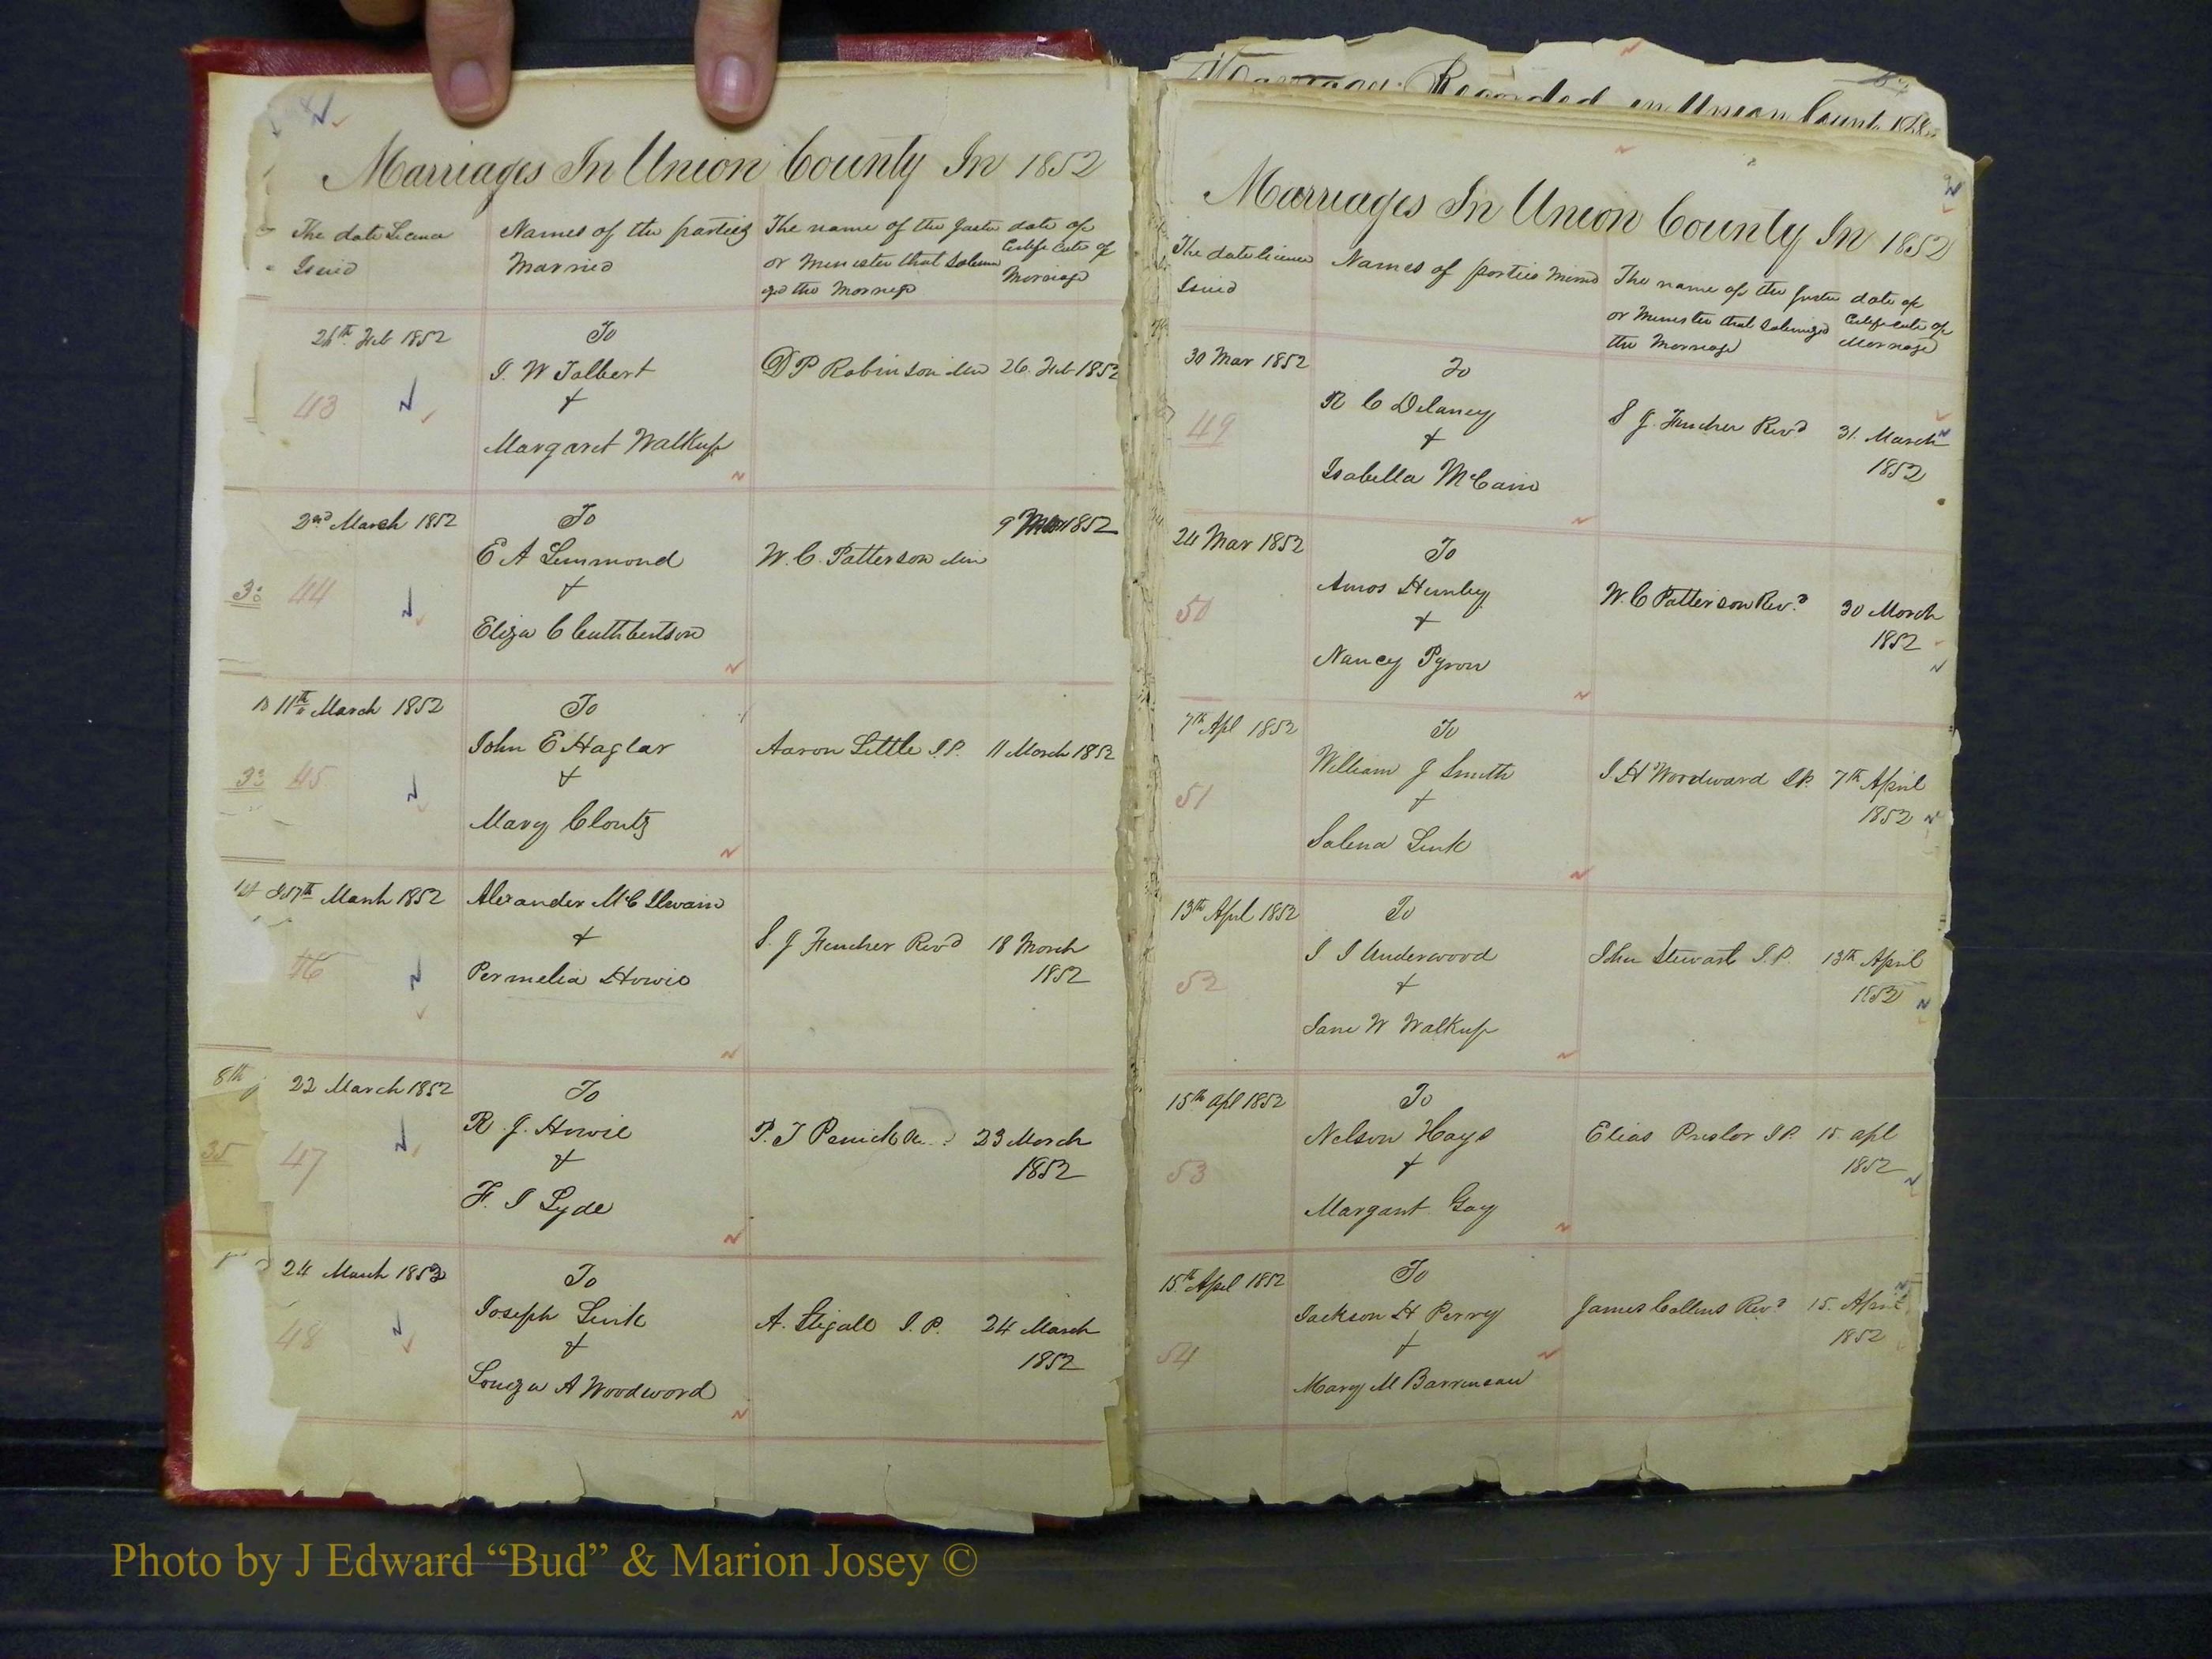 Marriages In Union County In 1852
The date Licence Names of the parties The name of the Justice date of
Issued Married or Minister that Solemn Certificate of
ized the Marriage Marriage
26th Feb 1852 To
J. W Talbert D P Robinson Min 26. Feb 1852
43 +
Margaret Walkup
2nd March 1852 To 9 1852
E A Lemmond W. C. Patterson Min
44 +
Eliza C Cuthbertson
11th March 1852 To
John E Haglar Aaron Little J.P. 11 March 1852
45 +
Mary Clontz
17th March 1852 Alexander McIlwain
+ S. J Fincher Revd 18 March
46 Permelia Howie 1852
8th 22 March 1852 To
R. J. Howie P. T Penick 23 March
35 47 + 1852
F. J Lyde
24 March 1852 To
Joseph Sink A. Stigall J. P. 24 March
48 + 1852
Louiza A Woodword
Marriages Recorded in Union
Marriages In Union County In 1852
The date licence Names of parties The name of the Justice date of
Issued or Minister that Solemnized Certificate of
the Marriage Marriage
30 Mar 1852 To
R C Delaney S J. Fincher Revd 31. March
49 + 1852
Isabella McCain
24 Mar 1852 To
Amos Hunley W. C Patterson Revd 30 March
50 + 1852
Nancy Pyron
7th Apl 1852 To
William J Smith J H Woodward J.P. 7th April
51 + 1852
Salena Sink
13th Apl 1852 To
J J Underwood John Stewart J.P. 13th April
52 + 1852
Jane W Walkup
15th apl 1852 To
Nelson Hays Elias Preslar J.P. 15. apl
53 + 1852
Margaret Gay
15th April 1852 To
Jackson H Perry James Collins Revd 15. April
54 + 1852
Mary M
Photo by J Edward “Bud” & Marion Josey ©